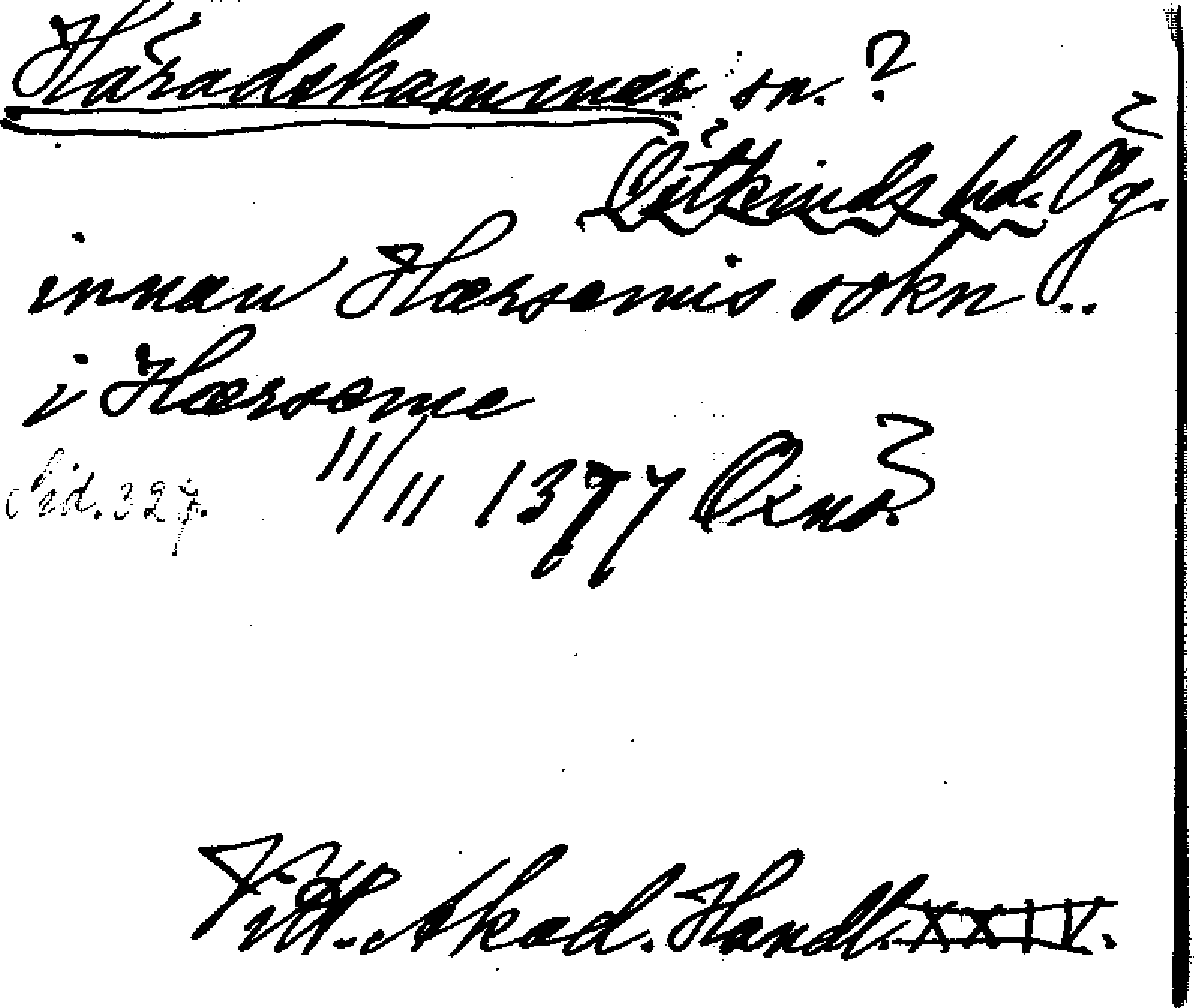 Häradshammar sn.?
Östkinds hd. Ög.
innan Hærsæmis sokn..
i Hærsæme
Sid. 327. 11/11 1377 Oxnö.
Vitt. Akad. Handl. XXIV.